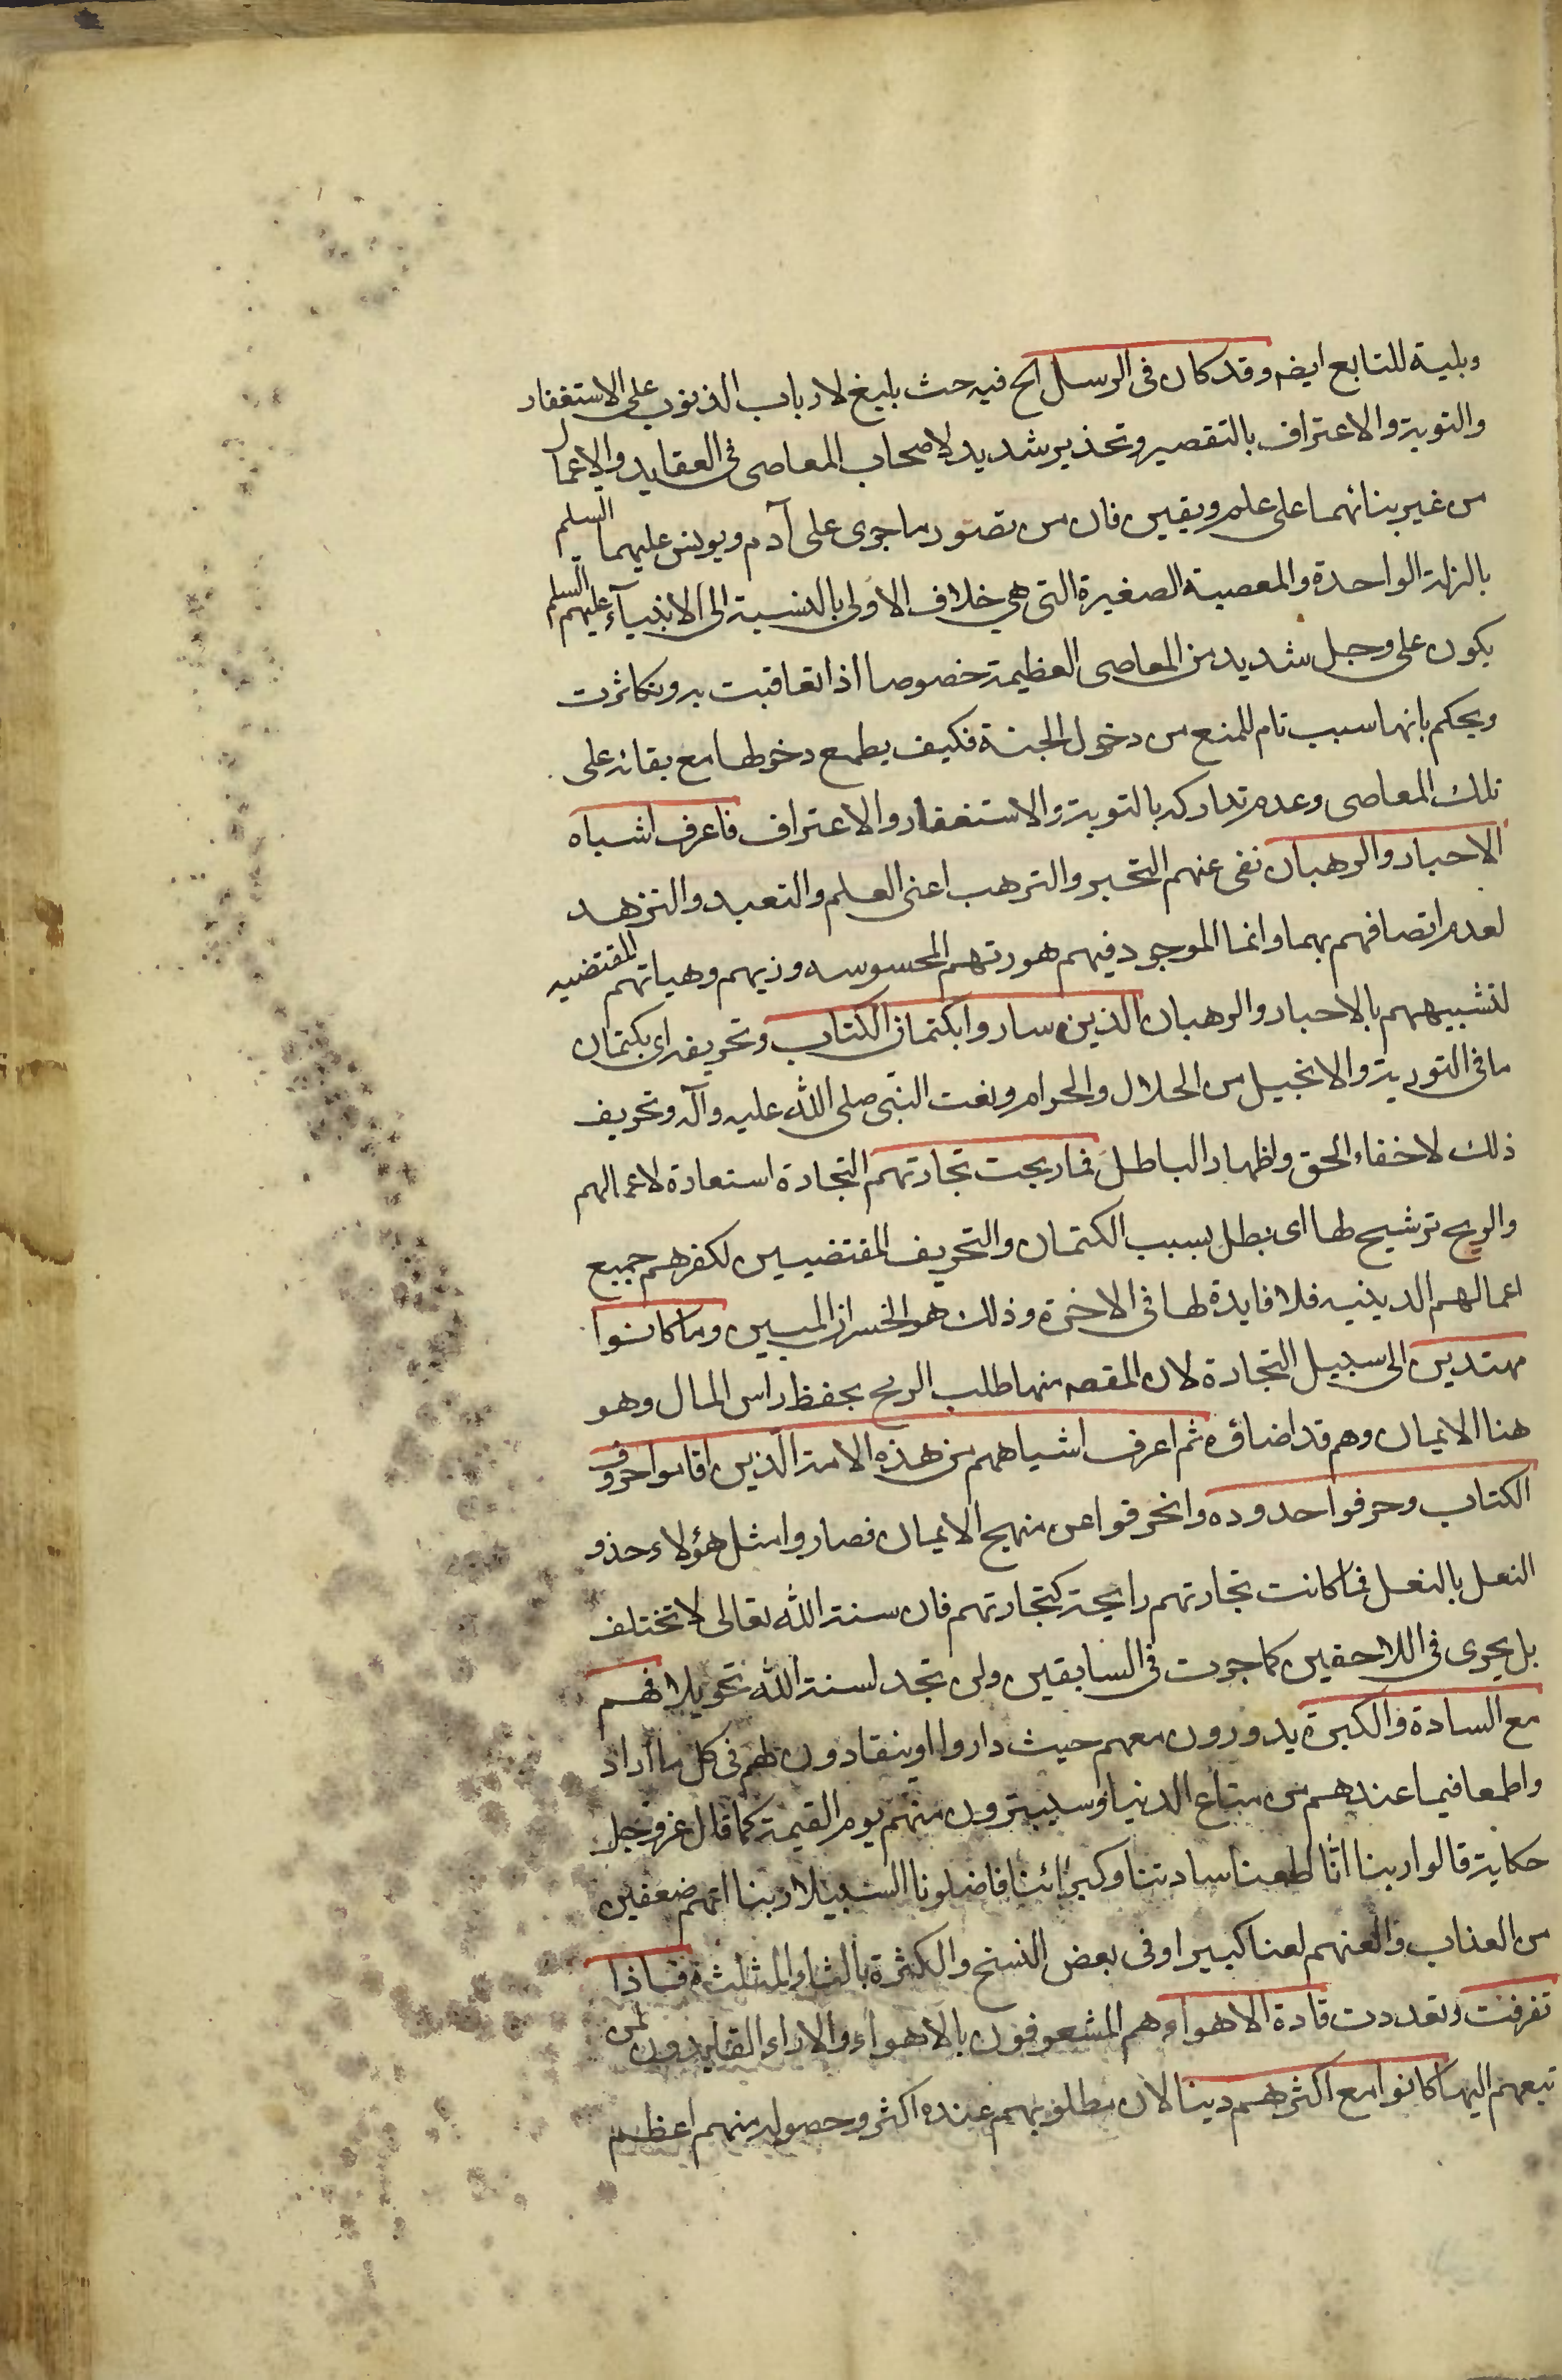 وبلية للتابع ايضه وقد كان فى الرسل الخ فيه حث بليغ لارباب الذنوب على الاستغفار
والتوبة والاعتراف بالتقصير وتحذير شديد لاصحاب المعاصى فى العقايد والاعمال
من غير بنائهما على علم ويقين فان من تصور ما جرى على آدم ويونس عليهما السلم
بالزلة الواحدة والمعصية الصغيرة التى هى خلاف الاولى بالنسبة الى الانبيآء عليهم السلم
يكون على وجل شديد من المعاصى العظيمة خصوصا اذا تعاقبت به وتكاثرت
ويحكم بانها سبب تام للمنع من دخول الجنة فكيف يطمع دخولها مع بقائه على
تلك المعاصى وعدم تداركه بالتوبة والاستغفار والاعتراف فاعرف اشباه
الاحبار والرهبان نفى عنهم التحبر والترهب اعنى العلم والتعبد والتزهد
لعدم اتصافهم بهما وانما الموجود فيهم صورتهم المحسوسه وزيهم وهياتهم المقتضيه
لتشبيههم بالاحبار والرهبان الذين ساروا بكتمان الكتاب وتحريفه اى بكتمان
ما فى التورية والانجيل من الحلال والحرام ونعت النبى صلى الله عليه وآله وتحريف
ذلك لاخفاء الحق واظهار الباطل فما ربحت تجارتهم التجارة استعارة لاعمالهم
والربح ترشيح لها اى بطل بسبب الكتمان والتحريف المقتضيين لكفرهم جميع
اعمالهم الدينيه فلا فايدة لها فى الاخرة وذلك هو الخسران المبين وما كانوا
مهتدين الى سبيل التجارة لان المقصه منها طلب الربح بحفظ راس المال وهو
هنا الايمان وهم قد اضاؤه ثم اعرف اشباههم من هذه الامة الذين اقاموا حروف
الكتاب وحرفوا حدوده وانحرفوا عن منهج الايمان فصاروا مثل هؤلاء حذو
النعل بالنعل فما كانت تجارتهم رابحة كتجارتهم فان سنة الله تعالى لا تختلف
بل يجرى فى اللاحقين كما جرت فى السابقين ولن تجد لسنة الله تحويلا فهم
مع السادة والكبرة يدورون معهم حيث داروا اوينقادون لهم فى كل ما اراد
واطمعا فيما عندهم من متاع الدنيا وسيبترون منهم يوم القيمة كما قال عز وجل
حكاية قالوا ربنا انا اطعنا سادتنا وكبرائنا فاضلونا السبيلا ربنا اتهم ضعفين
من العذاب والعنهم لعنا كبيرا وفى بعض النسخ والكثرة بالثاء المثلثة فاذا
تفرقت وتعددت قادة الاهواء وهم المشعوفون بالاهواء والاراء القايدون لمن
تبعهم اليها كانوا مع اكثرهم دينا لان مطلوبهم عنده اكثر وحصوله منهم اعظم